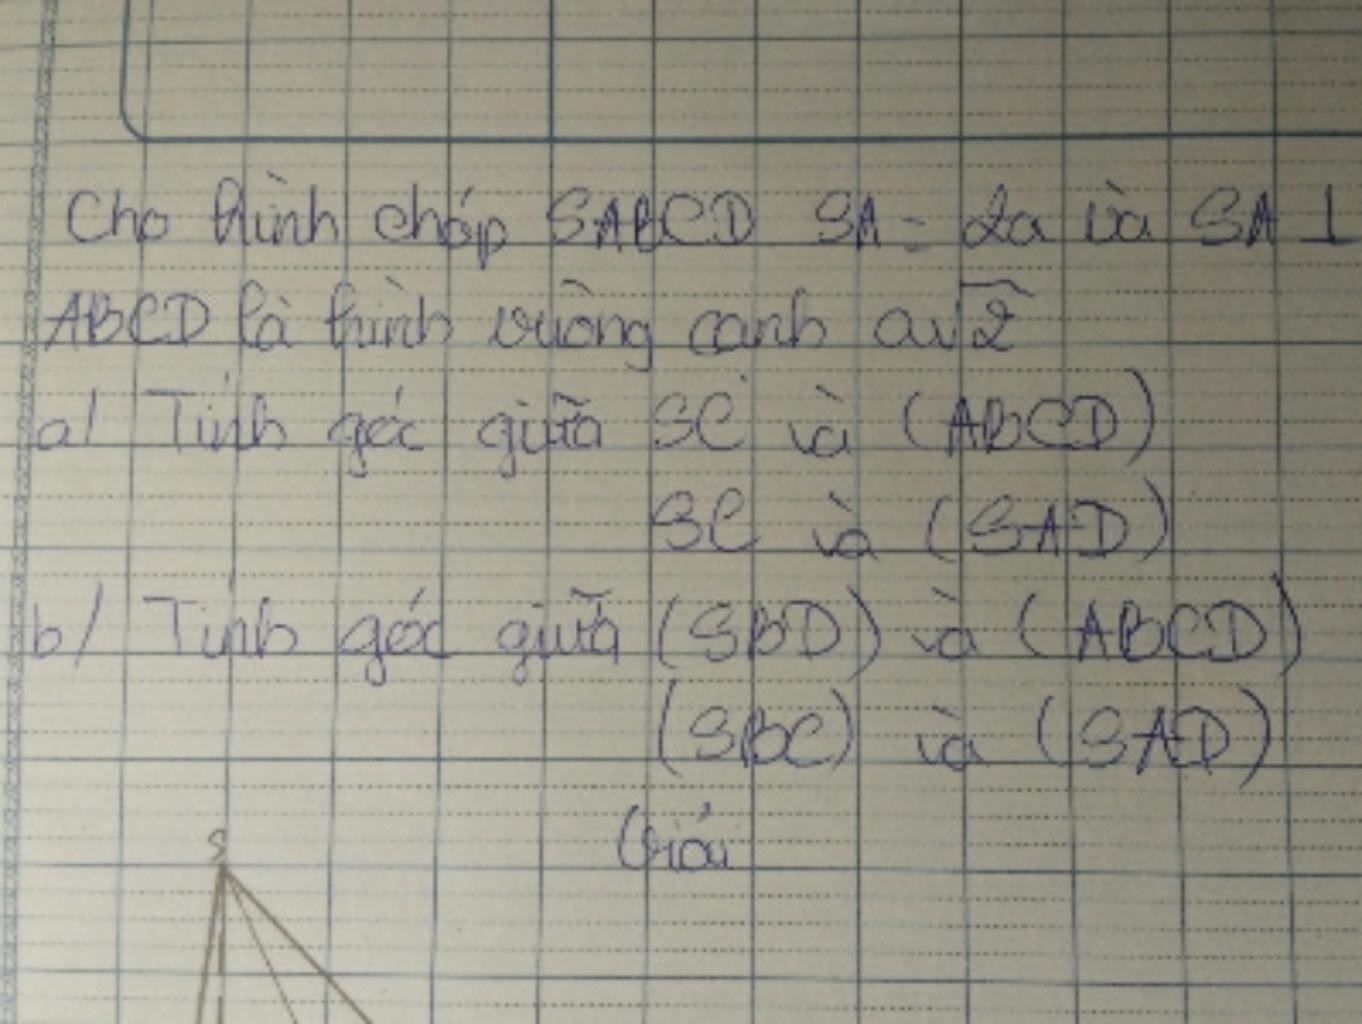 Cho hình chóp SABCD SA = 2a và SA ⊥
ABCD là hình vuông cạnh a√2
a/ Tính góc giữa SC và (ABCD)
SC và (SAD)
b/ Tính góc giữa (SBD) và (ABCD)
(SBC) và (SAD)
Giải
S